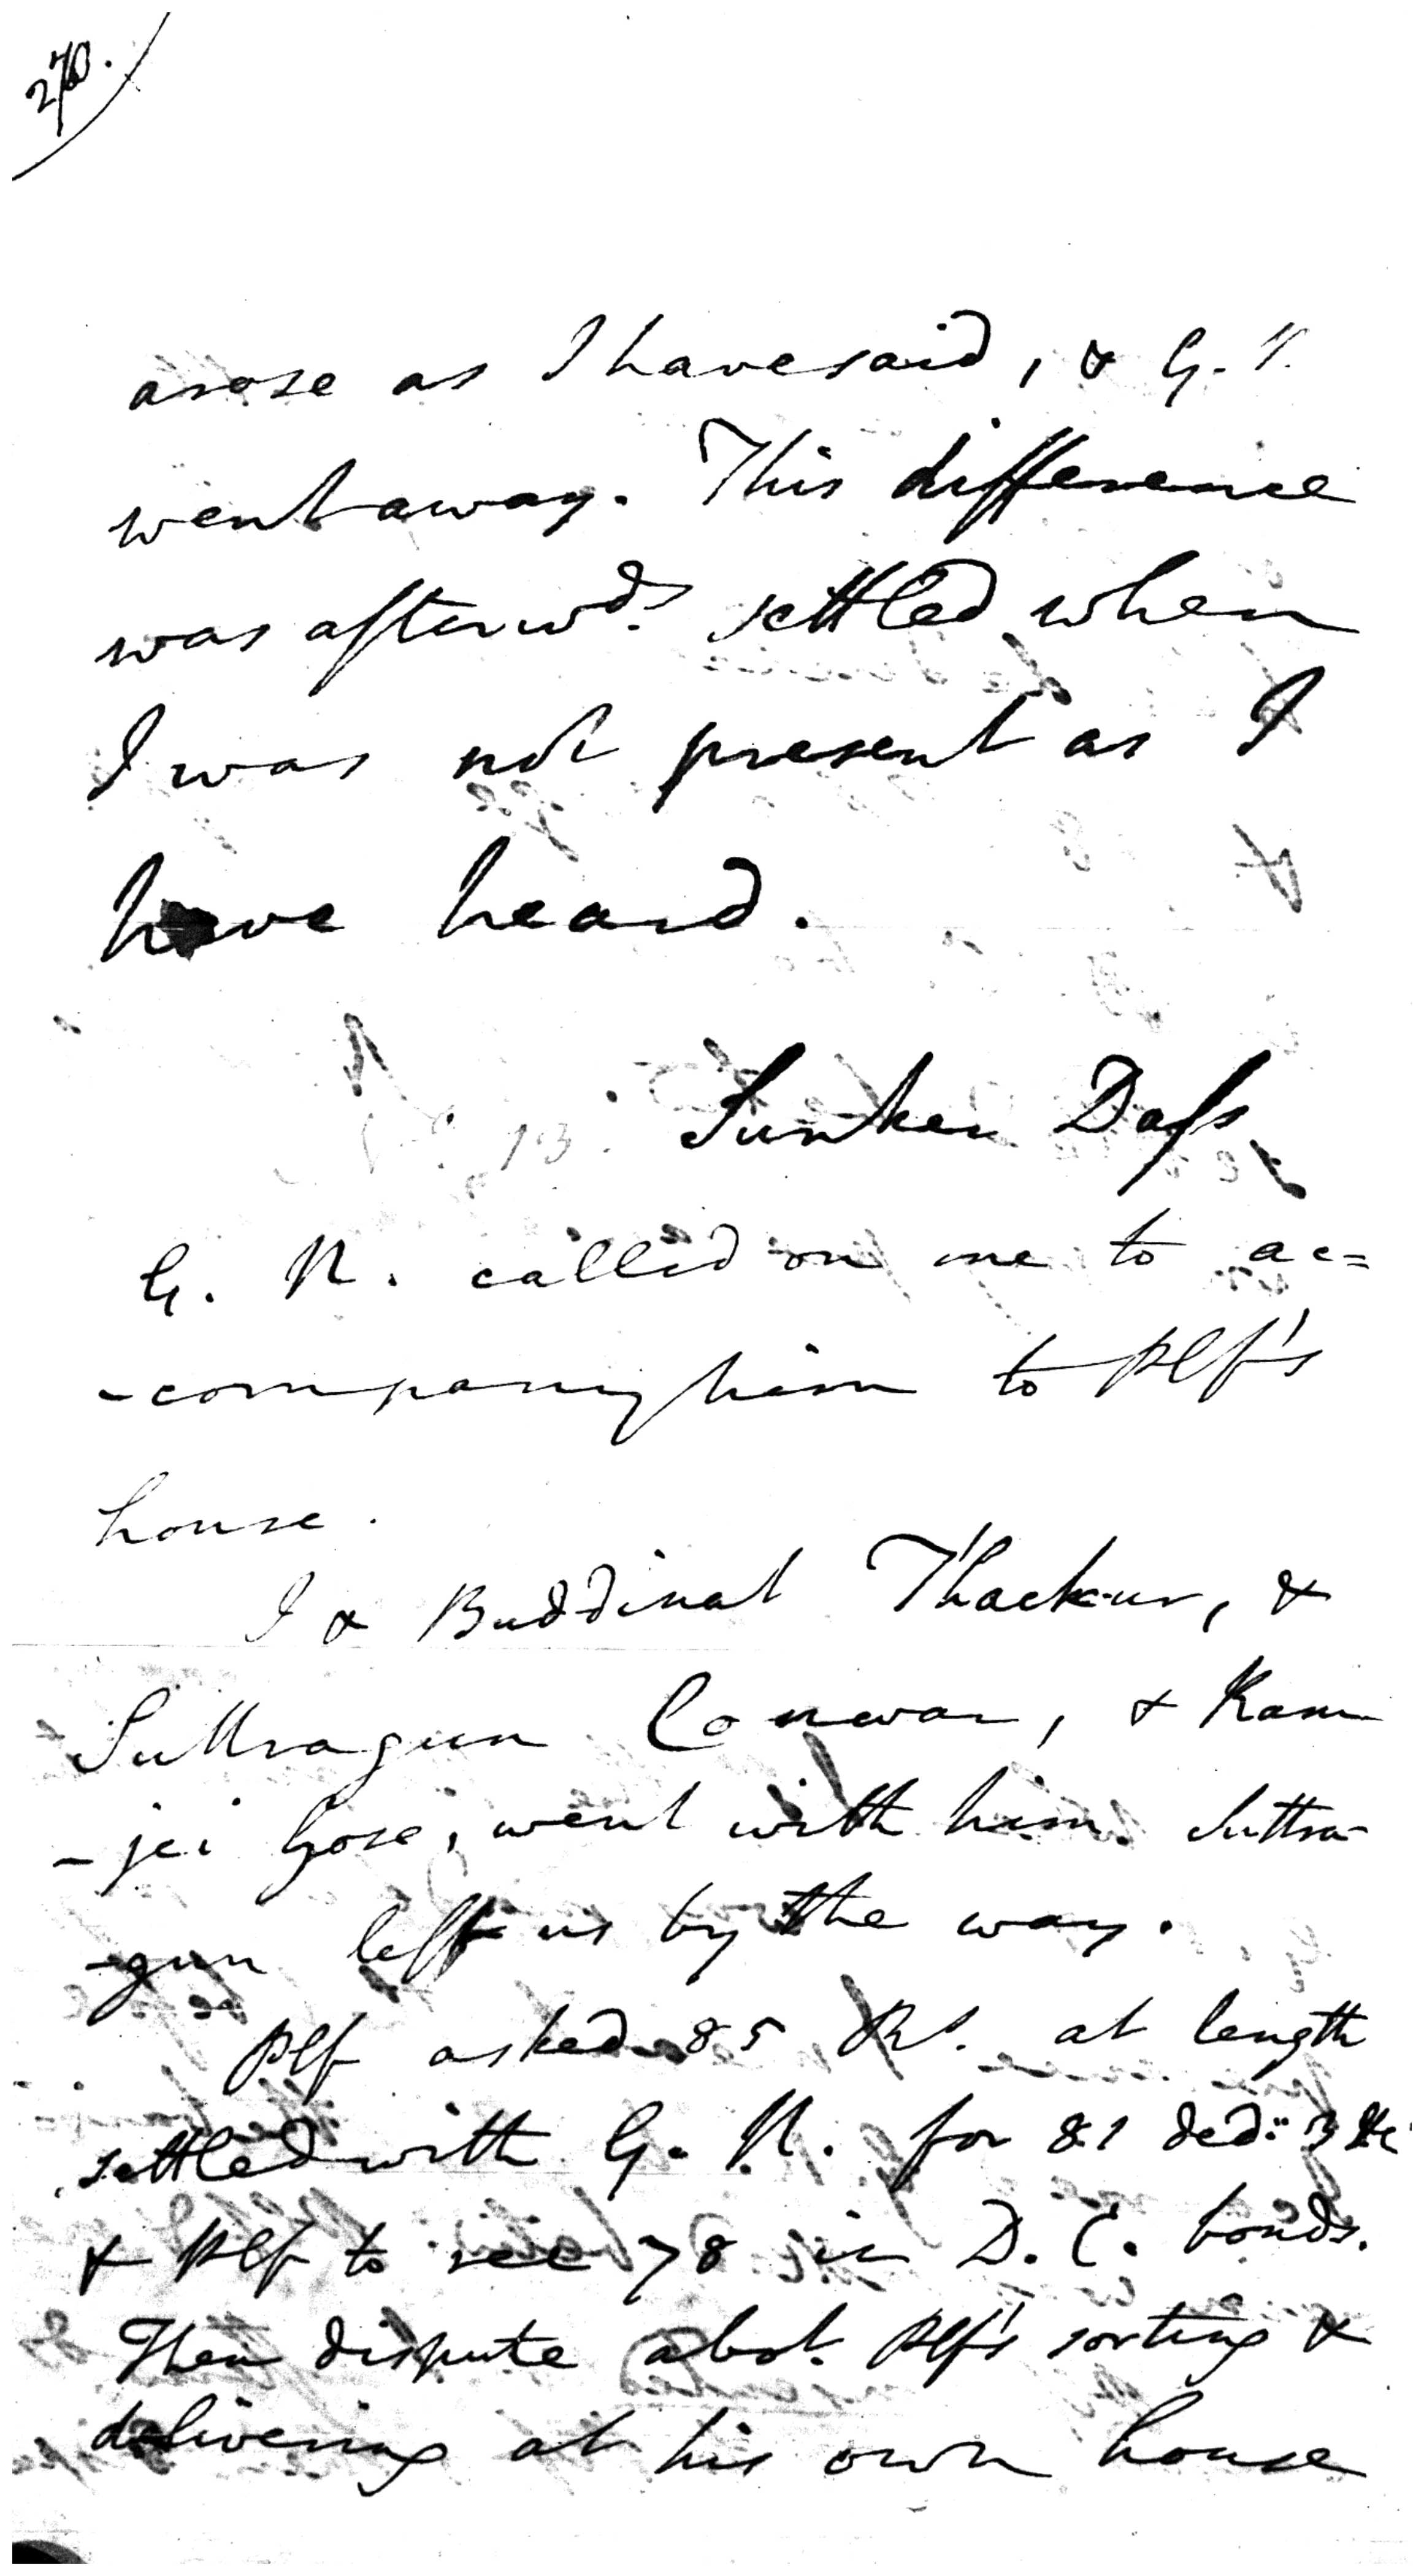 270.
arose as I have said, & G. N.
went away. This difference
was afterwds. settled when
I was not present as I
have heard.
Sunker Dass
G. N. called on me to ac=
-company him to Plf's
house.
I & Buddinat Thackur, &
Suttragun Conwar, & Ram
-jei Gose, went with him. Suttra-
-gun left us by the way.
Plf asked 85 Rs. at length
settled with G. N. for 81 ded:
& Plf to rec 78 in D. C. bonds.
Then dispute abot. Plf's sorting &
delivering at his own house